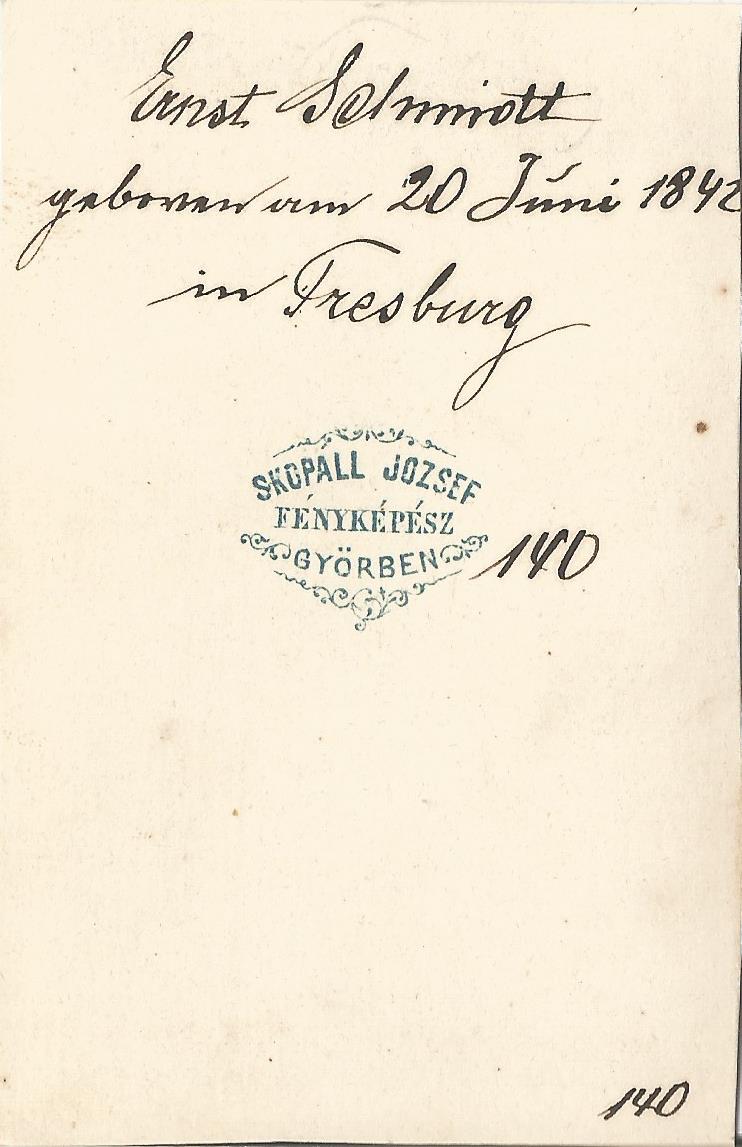 Ernst Schmidt
geboren am 20 Juni 1842
in Presburg
SKOPALL JOZSEF
FÉNYKÉPÉSZ
GYÖRBEN
140
140